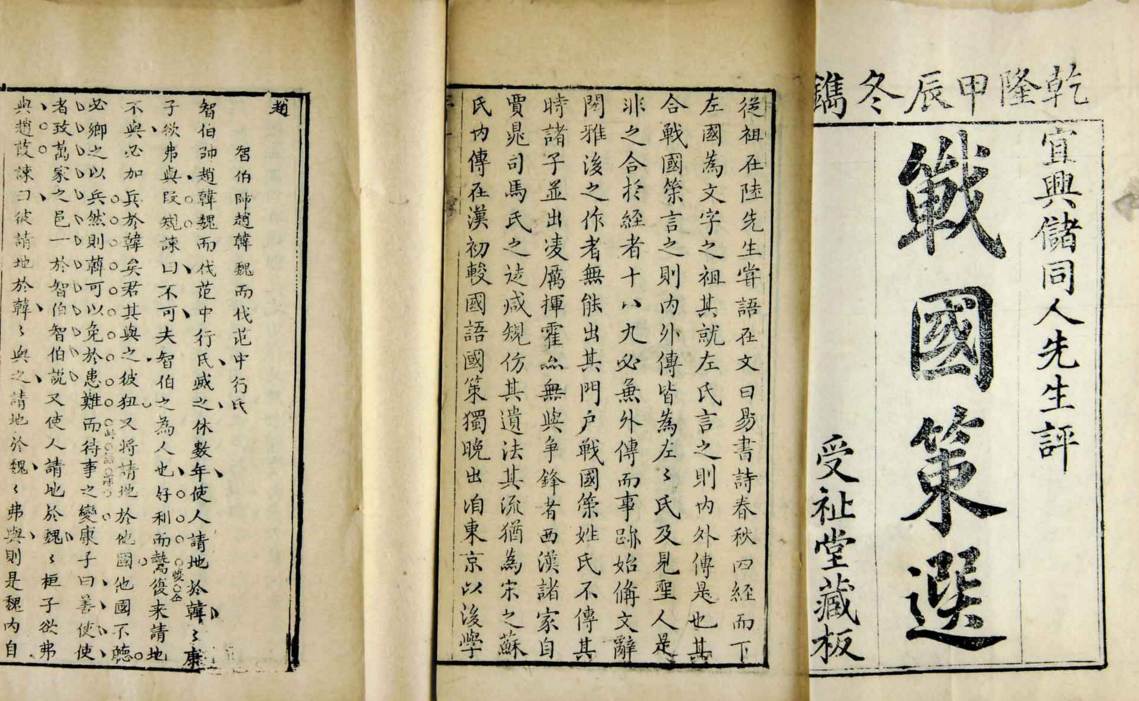 乾隆甲辰冬鐫
宜興儲同人先生評
戰國策選
受祉堂藏板
從祖在陸先生嘗語在文曰易書詩春秋四經而下
左國為文字之祖其就左氏言之則內外傳是也其
合戰國策言之則內外傳皆為左〻氏及見聖人是
非之合於經者十八九必兼外傳而事跡始備文辭
閎雅後之作者無能出其門户戰國策姓氏不傳其
時諸子並出凌厲揮霍無與爭鋒者西漢諸家自
賈晁司馬氏之徒咸規仿其遺法其流猶為宋之蘇
氏內傳在漢初較國語國策獨晚出洎東京以後學
趙
智伯帥趙韓魏而伐范中行氏
智伯帥趙韓魏而伐范中行氏滅之休數年使人請地於韓〻康
子欲弗與段規諫曰不可夫智伯之為人也好利而鷙復来請地
不與必加兵於韓矣君其與之彼狃又將請地於他國他國不聽
必鄉之以兵然則韓可以免於患難而待事之變康子曰善使使
者致萬家之邑一於智伯智伯說又使人請地於魏〻桓子欲弗
與趙葭諫曰彼請地於韓〻與之請地於魏〻弗與則是魏內自